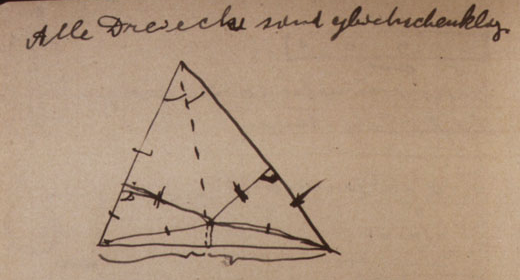 Alle Dreiecke sind gleichschenklig